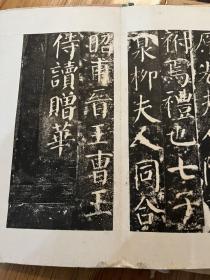 祔焉禮也七子
泉柳夫人同合
昭甫晉王曹王
侍讀贈華